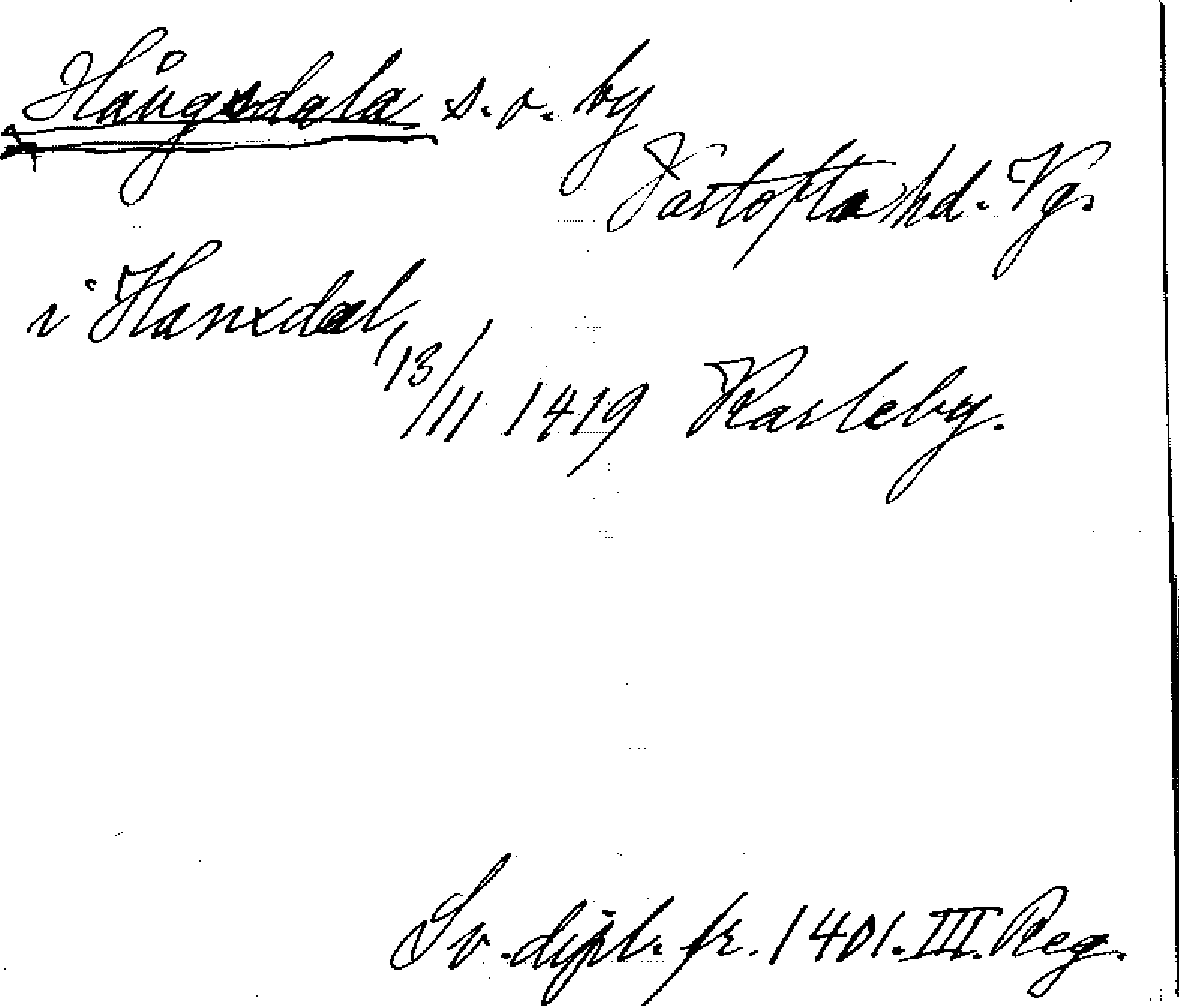 Hångsdala s. o. by
Vartofta hd. Vg.
i Hanxdal,
13/11 1419 Karleby.
Sv. dipl. fr. 1401. III. Reg.